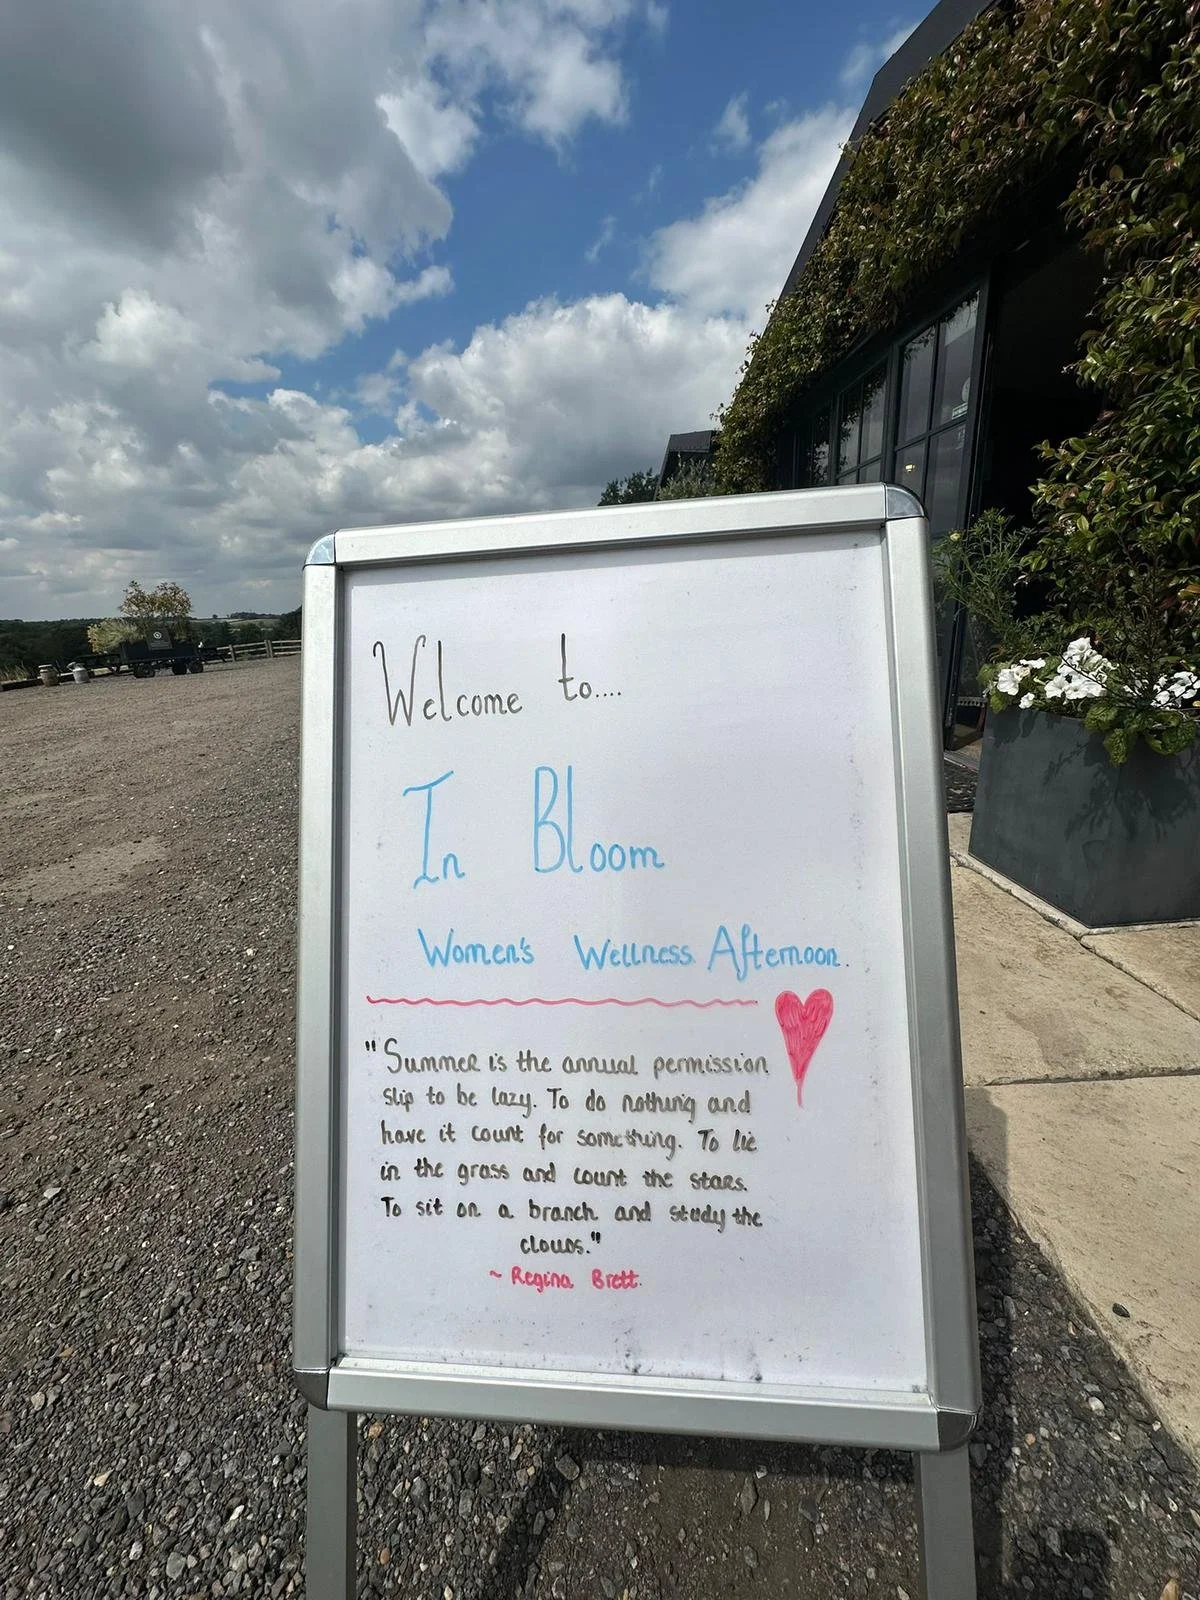 Welcome to....
In Bloom
Women's Wellness Afternoon.
"Summer is the annual permission
slip to be lazy. To do nothing and
have it count for something. To lie
in the grass and count the stars.
To sit on a branch and study the
clouds."
~ Regina Brett.